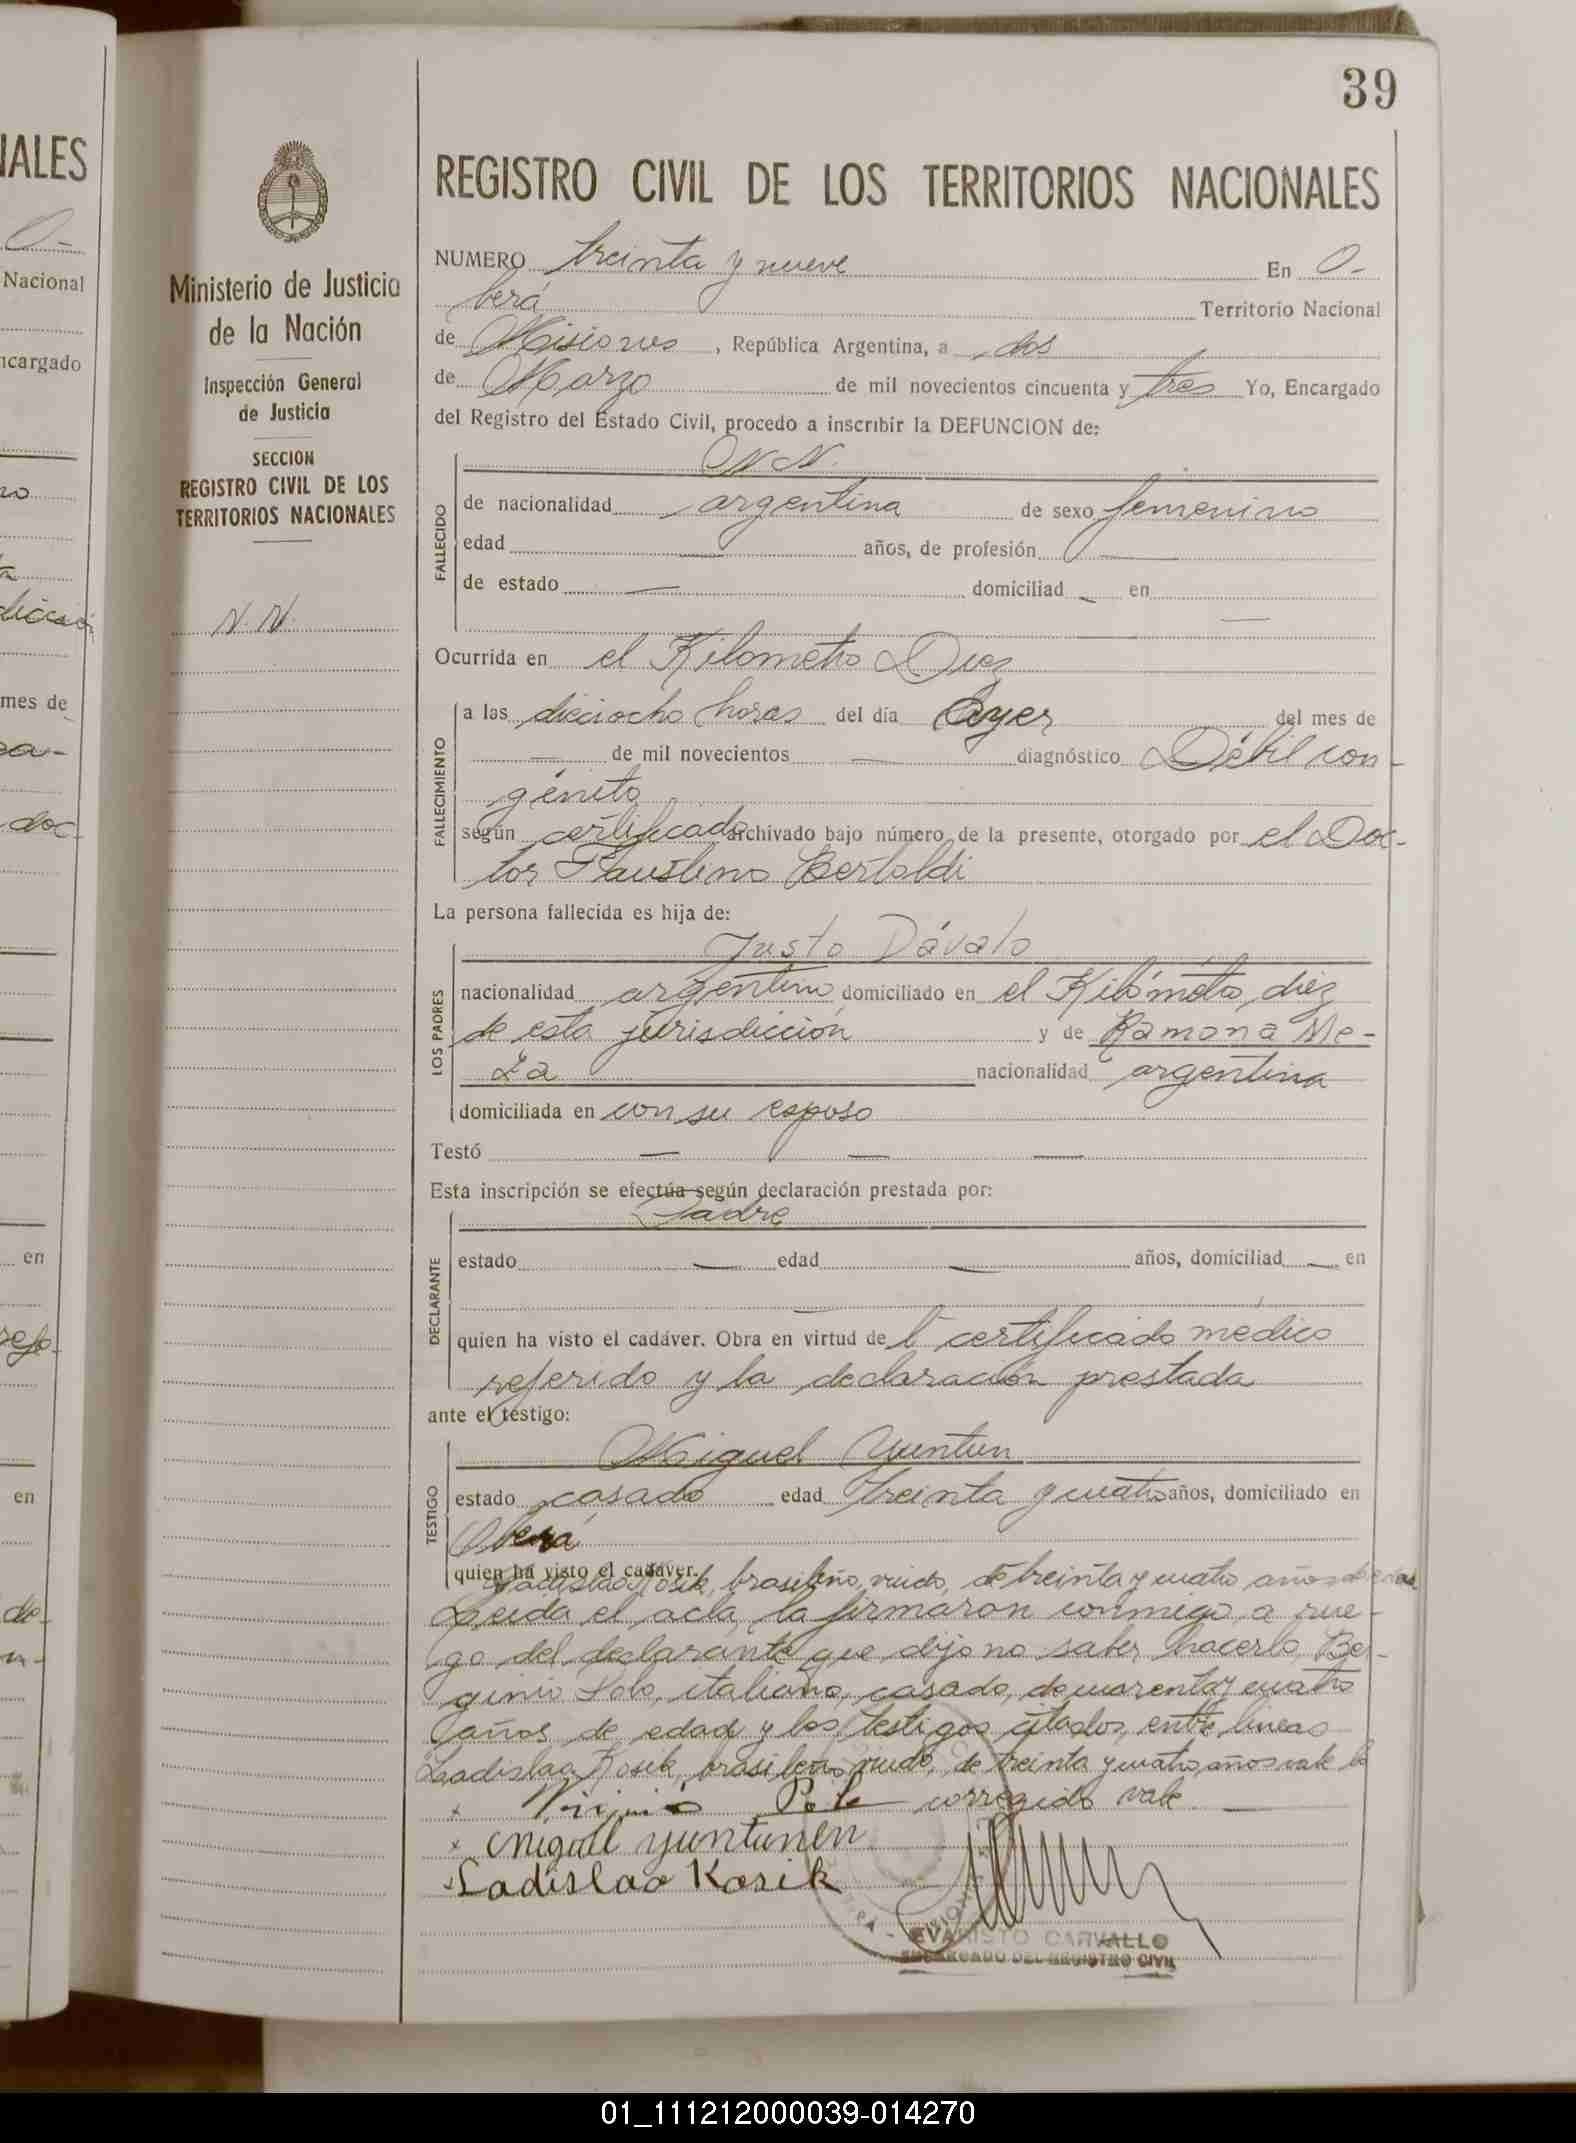 39
REGISTRO CIVIL DE LOS TERRITORIOS NACIONALES
Ministerio de Justicia
de la Nación
Inspección General
de Justicia
SECCION
REGISTRO CIVIL DE LOS
TERRITORIOS NACIONALES
N. N.
NUMERO treinta y nueve En O-
berá Territorio Nacional
de Misiones, República Argentina, a dos
de Marzo de mil novecientos cincuenta y tres Yo, Encargado
del Registro del Estado Civil, procedo a inscribir la DEFUNCION de:
N N.
FALLECIDO
de nacionalidad argentina de sexo femenino
edad — años, de profesión —
de estado — domiciliad — en
—
Ocurrida en el Kilometro Diez
FALLECIMIENTO
a las dieciocho horas del día Ayer del mes de
— de mil novecientos — diagnóstico Débil con-
génito
según certificado archivado bajo número de la presente, otorgado por el Doc-
tor Faustino Bertoldi
La persona fallecida es hija de:
LOS PADRES
Justo Dávalo
nacionalidad argentino domiciliado en el Kilómetro diez
de esta jurisdicción y de Ramona Me-
za nacionalidad argentina
domiciliada en con su esposo
Testó — — —
Esta inscripción se efectúa según declaración prestada por:
DECLARANTE
Padre
estado — edad — años, domiciliad — en
—
quien ha visto el cadáver. Obra en virtud de l certificado médico
referido y la declaración prestada
ante el testigo:
TESTIGO
Miguel Yuntun
estado casado edad treinta y cuatro años, domiciliado en
Oberá
quien ha visto el cadáver.
Ladislao Kosik, brasileño, viudo, de treinta y cuatro años de edad
Leida el acta, la firmaron conmigo, a rue-
go del declarante que dijo no saber hacerlo, Ber-
ginio Polo, italiano, casado, de cuarenta y cuatro
años de edad y los testigos citados, entre lineas
Ladislao Kosik, brasileño viudo, de treinta y cuatro años vale lo
corregido vale
x Miguel Yuntunen
Ladislao Kosik
EVARISTO CARVALLO
ENCARGADO DEL REGISTRO CIVIL
01_111212000039-014270